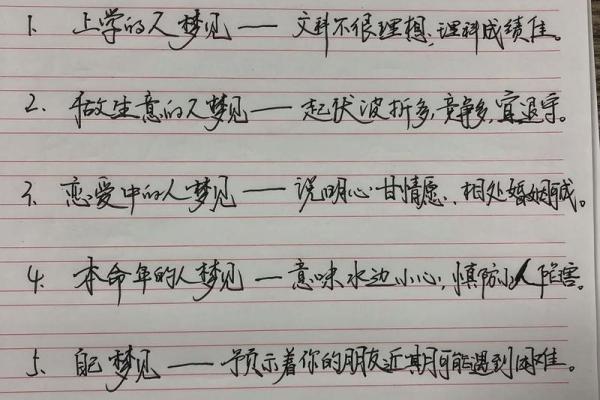 1、上学的人梦见——文科不很理想,理科成绩佳。
2、做生意的人梦见——起伏波折多,竞争多,宜退守。
3、恋爱中的人梦见——说明心甘情愿,相处婚姻诚。
4、本命年的人梦见——意味水边小心,慎防小人陷害。
5、自己梦见——预示着你的朋友近期可能遇到困难。